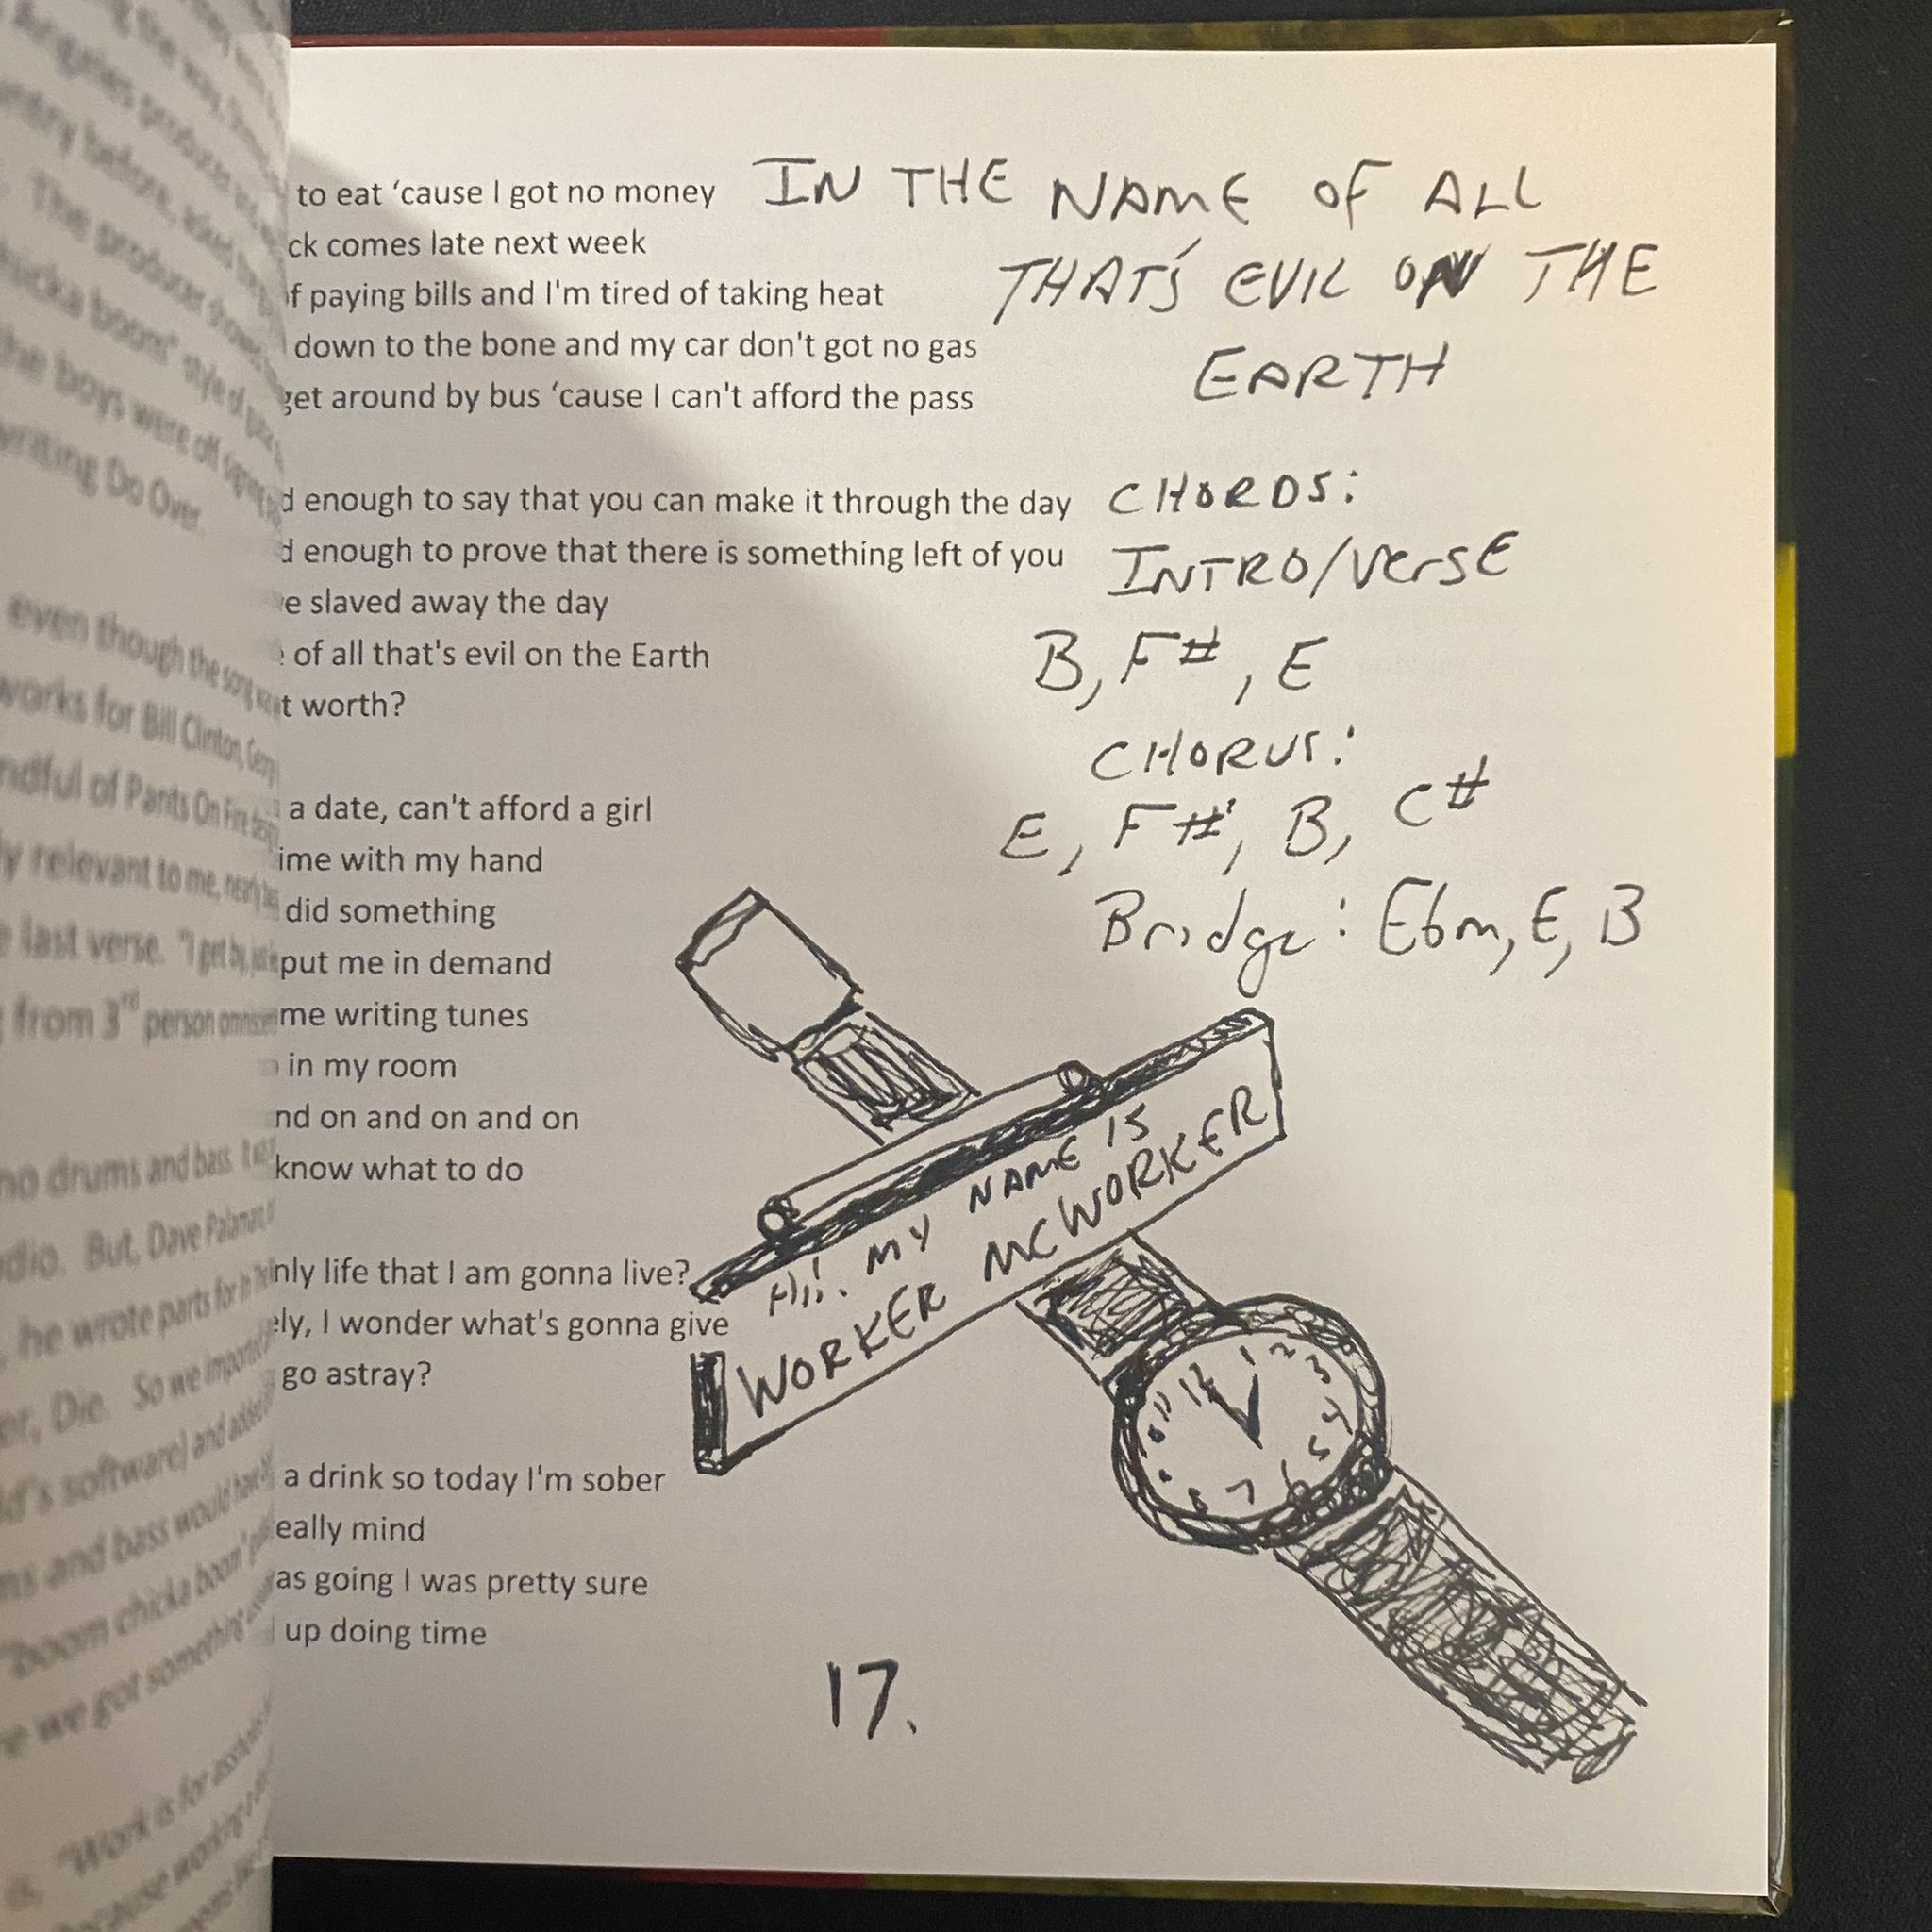 to eat ‘cause I got no money
ck comes late next week
f paying bills and I'm tired of taking heat
down to the bone and my car don't got no gas
get around by bus ‘cause I can't afford the pass
d enough to say that you can make it through the day
d enough to prove that there is something left of you
e slaved away the day
of all that's evil on the Earth
t worth?
a date, can't afford a girl
ime with my hand
did something
put me in demand
me writing tunes
in my room
nd on and on and on
know what to do
nly life that I am gonna live?
ely, I wonder what's gonna give
go astray?
a drink so today I'm sober
eally mind
as going I was pretty sure
up doing time
IN THE NAME OF ALL
THAT'S EVIL ON THE
EARTH
CHORDS:
INTRO/VerSE
B, F#, E
CHORUS:
E, F#, B, C#
Bridge: Ebm, E, B
Hi! MY NAME IS
WORKER MCWORKER
12 1 2 3 4 5 6 7 8 9 10 11
17.
angeles produces
ntry before,
The producer
chicka boom" style of
the boys were off
writing Do Over.
even though the song
works for Bill Clinton,
ndful of Pants On Fire
ly relevant to me, nearly
last verse. "I get by,
from 3rd person
no drums and bass.
dio. But, Dave
he wrote parts for
er, Die. So we imported
ld's software) and added
ms and bass would
"boom chicka boom"
e we got something
"Work is for
because working